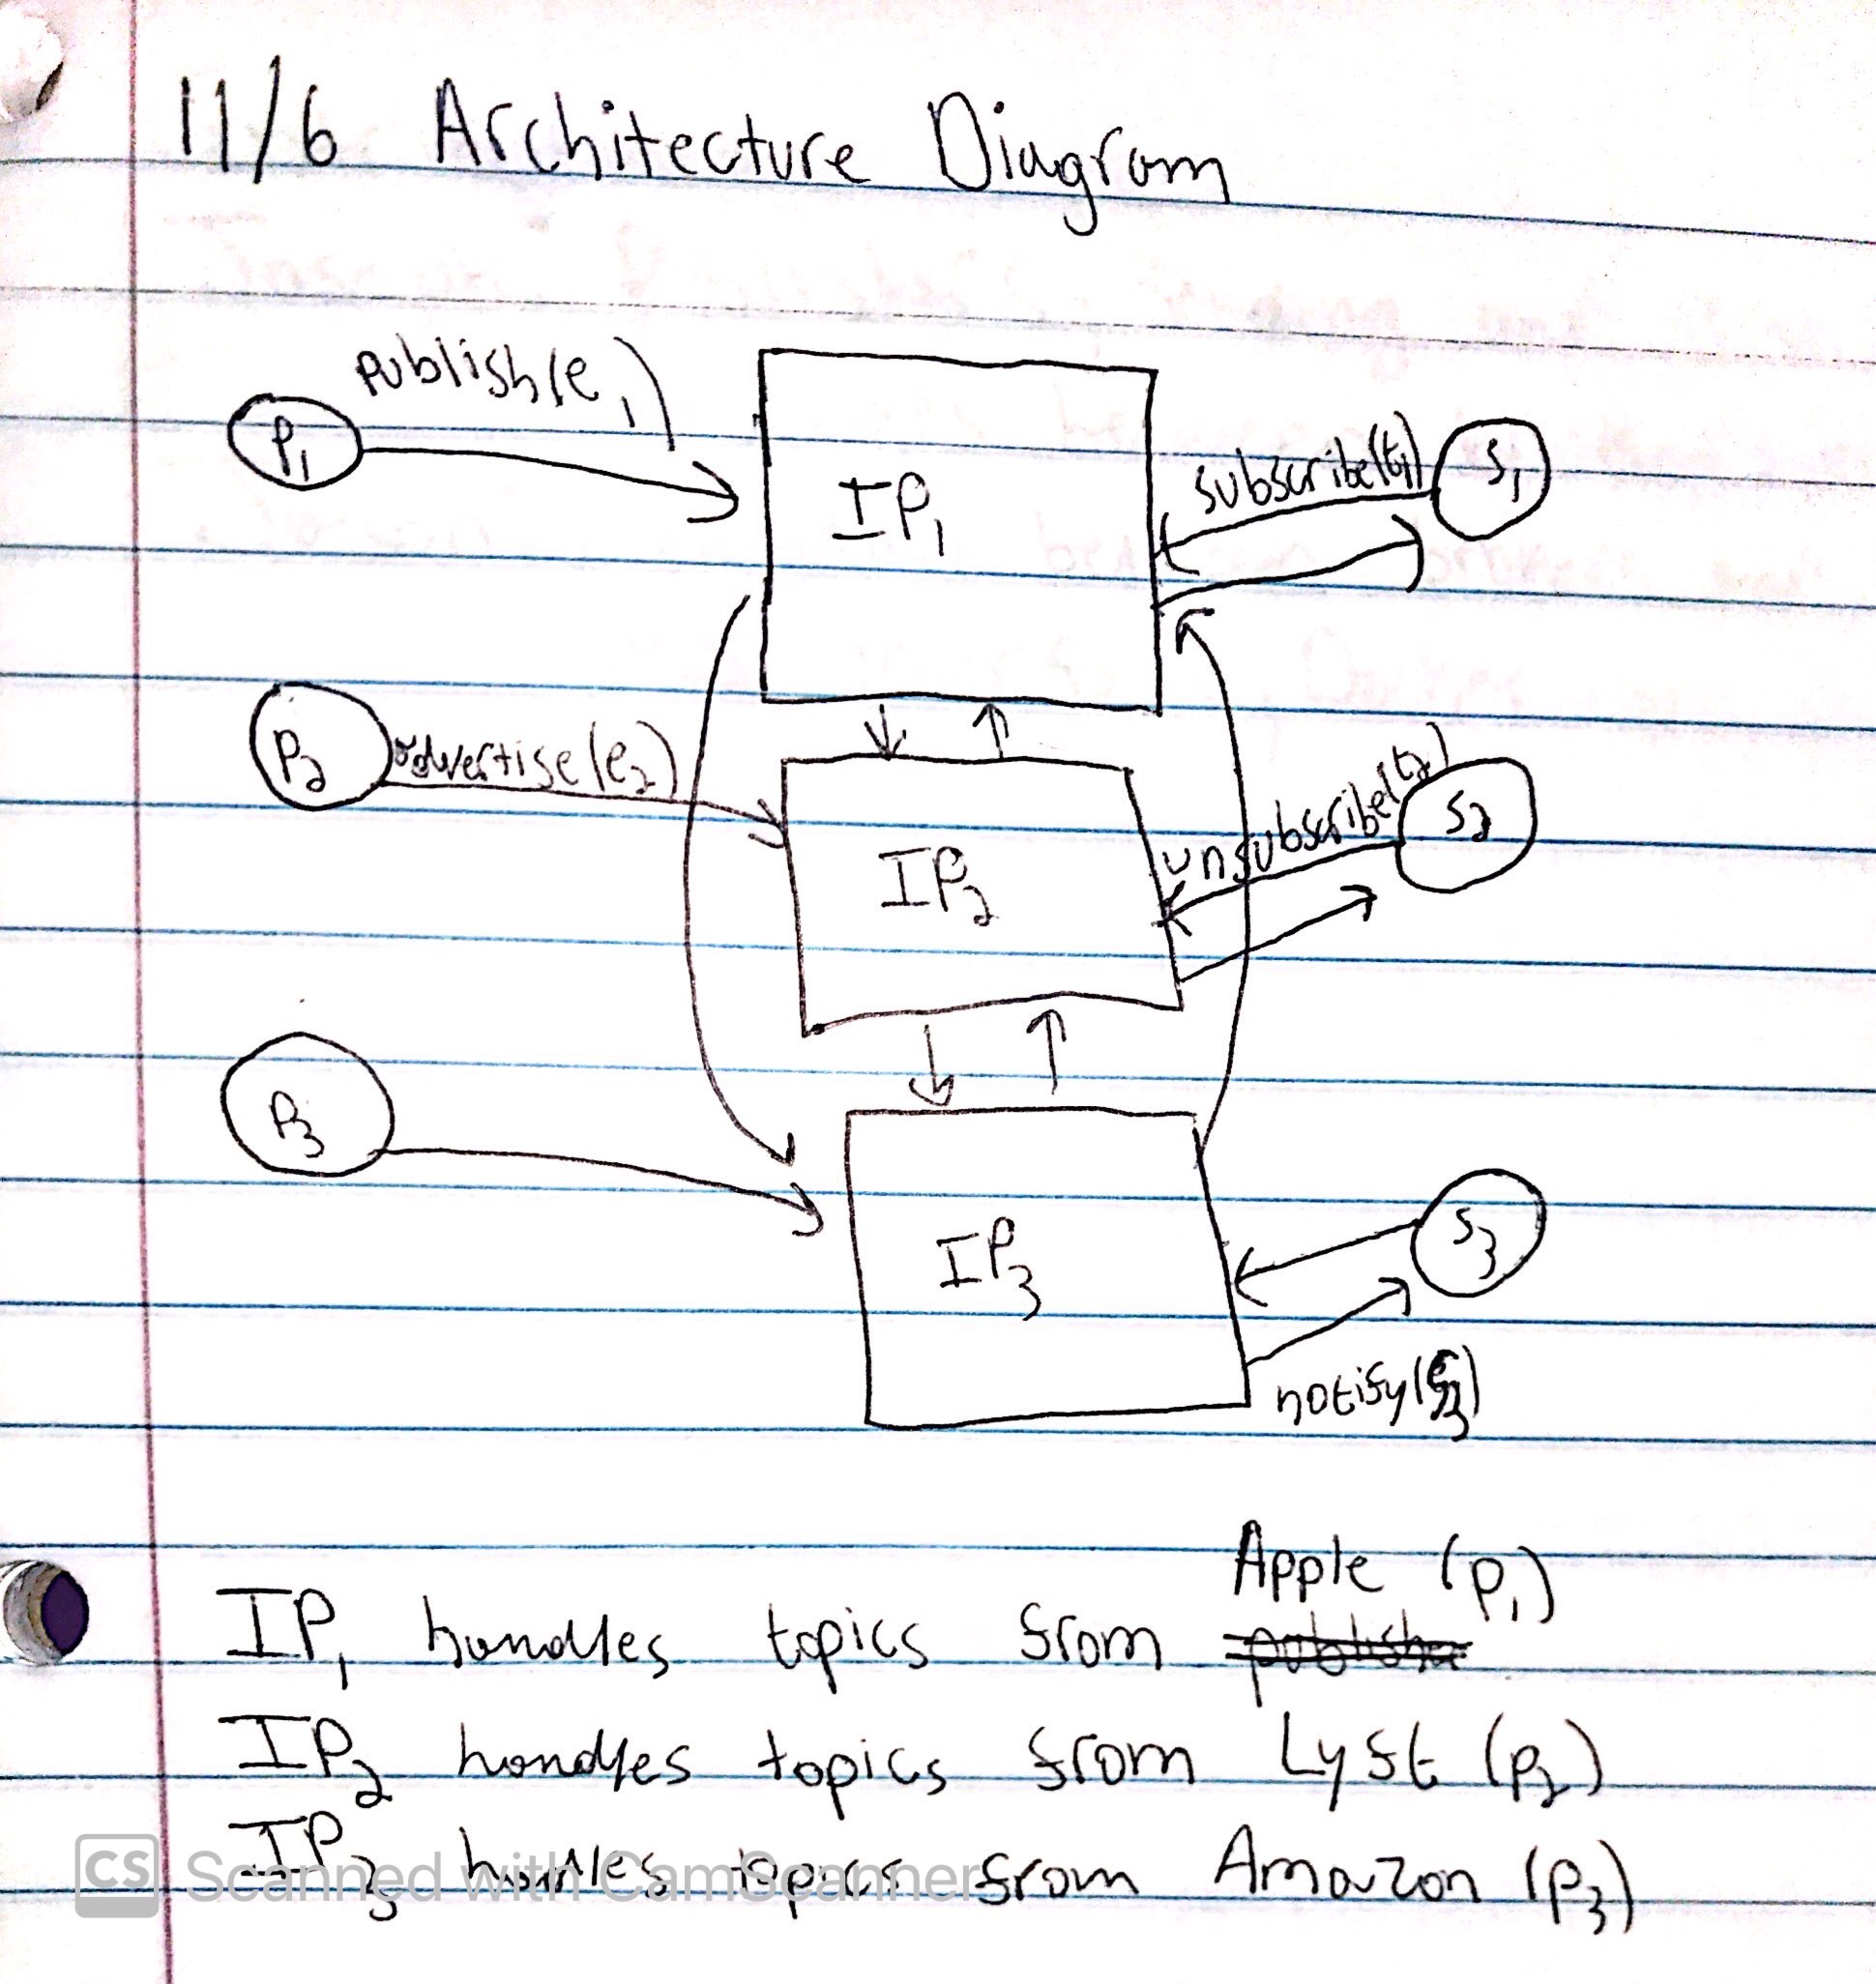 11/6 Architecture Diagram
publish(e₁)
p₁
IP₁
subscribe(t₁)
s₁
p₂
advertise(e₂)
IP₂
unsubscribe(t₂)
s₂
p₃
IP₃
s₃
notify(e₃)
Apple (p₁)
IP₁ handles topics from publisher
IP₂ handles topics from Lyft (p₂)
IP₃ handles topics from Amazon (p₃)
CS Scanned with CamScanner